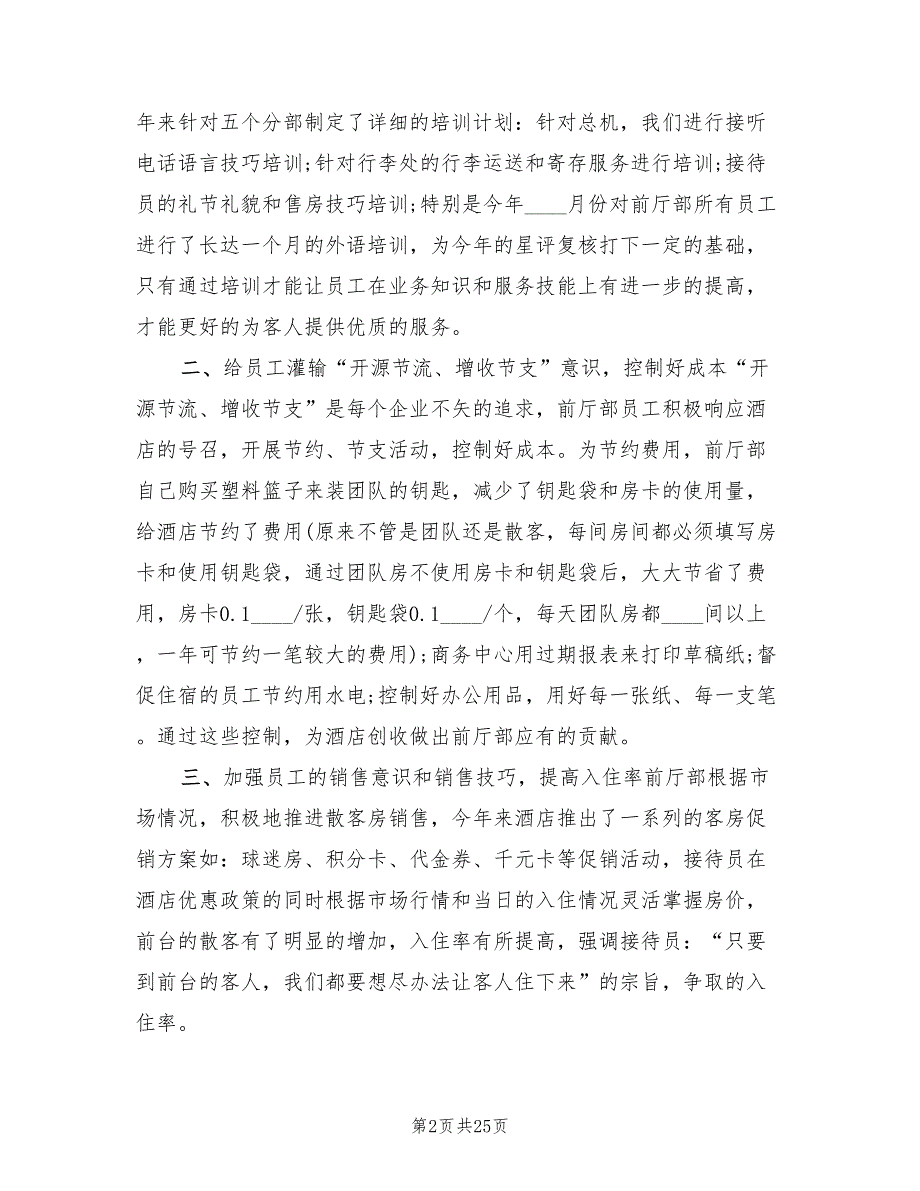 年来针对五个分部制定了详细的培训计划：针对总机，我们进行接听
电话语言技巧培训;针对行李处的行李运送和寄存服务进行培训;接待
员的礼节礼貌和售房技巧培训;特别是今年____月份对前厅部所有员工
进行了长达一个月的外语培训，为今年的星评复核打下一定的基础，
只有通过培训才能让员工在业务知识和服务技能上有进一步的提高，
才能更好的为客人提供优质的服务。
二、给员工灌输“开源节流、增收节支”意识，控制好成本“开
源节流、增收节支”是每个企业不矢的追求，前厅部员工积极响应酒
店的号召，开展节约、节支活动，控制好成本。为节约费用，前厅部
自己购买塑料篮子来装团队的钥匙，减少了钥匙袋和房卡的使用量，
给酒店节约了费用(原来不管是团队还是散客，每间房间都必须填写房
卡和使用钥匙袋，通过团队房不使用房卡和钥匙袋后，大大节省了费
用，房卡0.1____/张，钥匙袋0.1____/个，每天团队房都____间以上
，一年可节约一笔较大的费用);商务中心用过期报表来打印草稿纸;督
促住宿的员工节约用水电;控制好办公用品，用好每一张纸、每一支笔
。通过这些控制，为酒店创收做出前厅部应有的贡献。
三、加强员工的销售意识和销售技巧，提高入住率前厅部根据市
场情况，积极地推进散客房销售，今年来酒店推出了一系列的客房促
销方案如：球迷房、积分卡、代金券、千元卡等促销活动，接待员在
酒店优惠政策的同时根据市场行情和当日的入住情况灵活掌握房价，
前台的散客有了明显的增加，入住率有所提高，强调接待员：“只要
到前台的客人，我们都要想尽办法让客人住下来”的宗旨，争取的入
住率。
第2页共25页